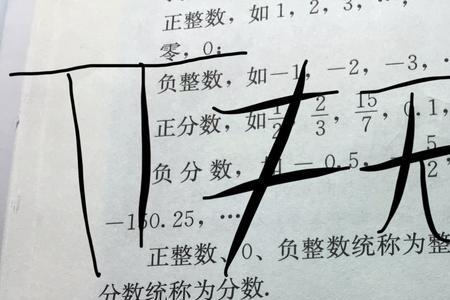 正整数，如 1，2，3，
零，0；
负整数，如−1，−2，−3，
正分数，如 1/2，2/3，15/7，0.1，
负分数，如−0.5，5/2
−150.25，…
正整数、0、负整数统称为整
分数统称为分数.
Π≠